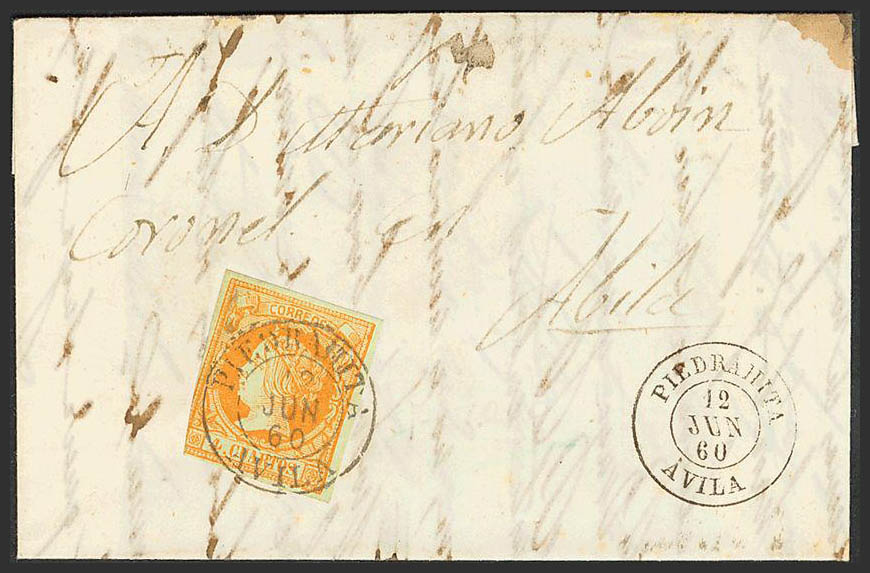 A D Mariano Alvin
Coronel en
Abila
CORREOS
PIEDRAHITA
JUN
60
AVILA
PIEDRAHITA
12
JUN
60
ÁVILA